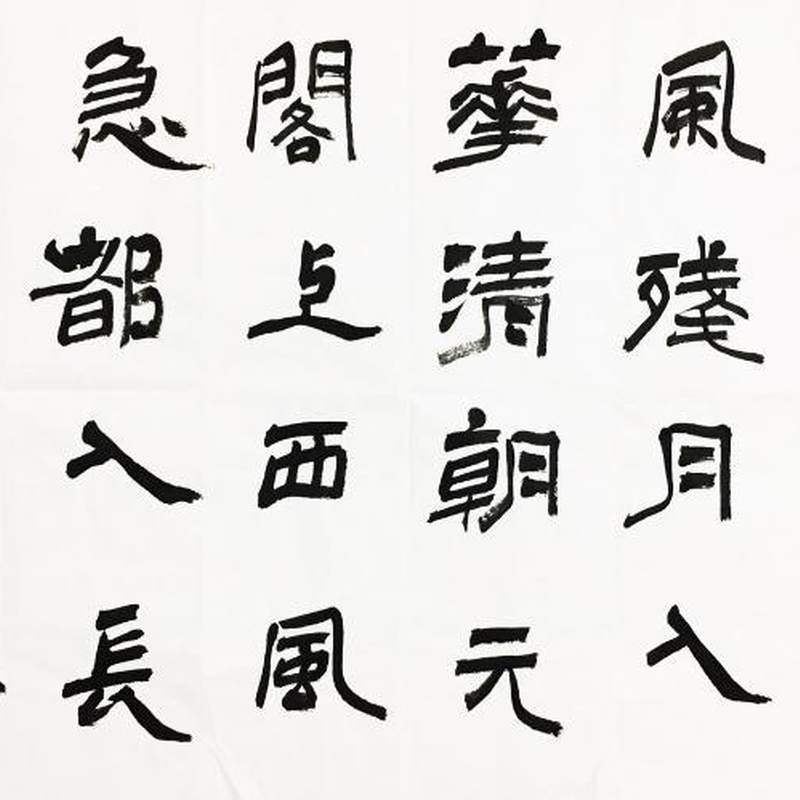 風殘月入
華清朝元
閣上西風
急都入長